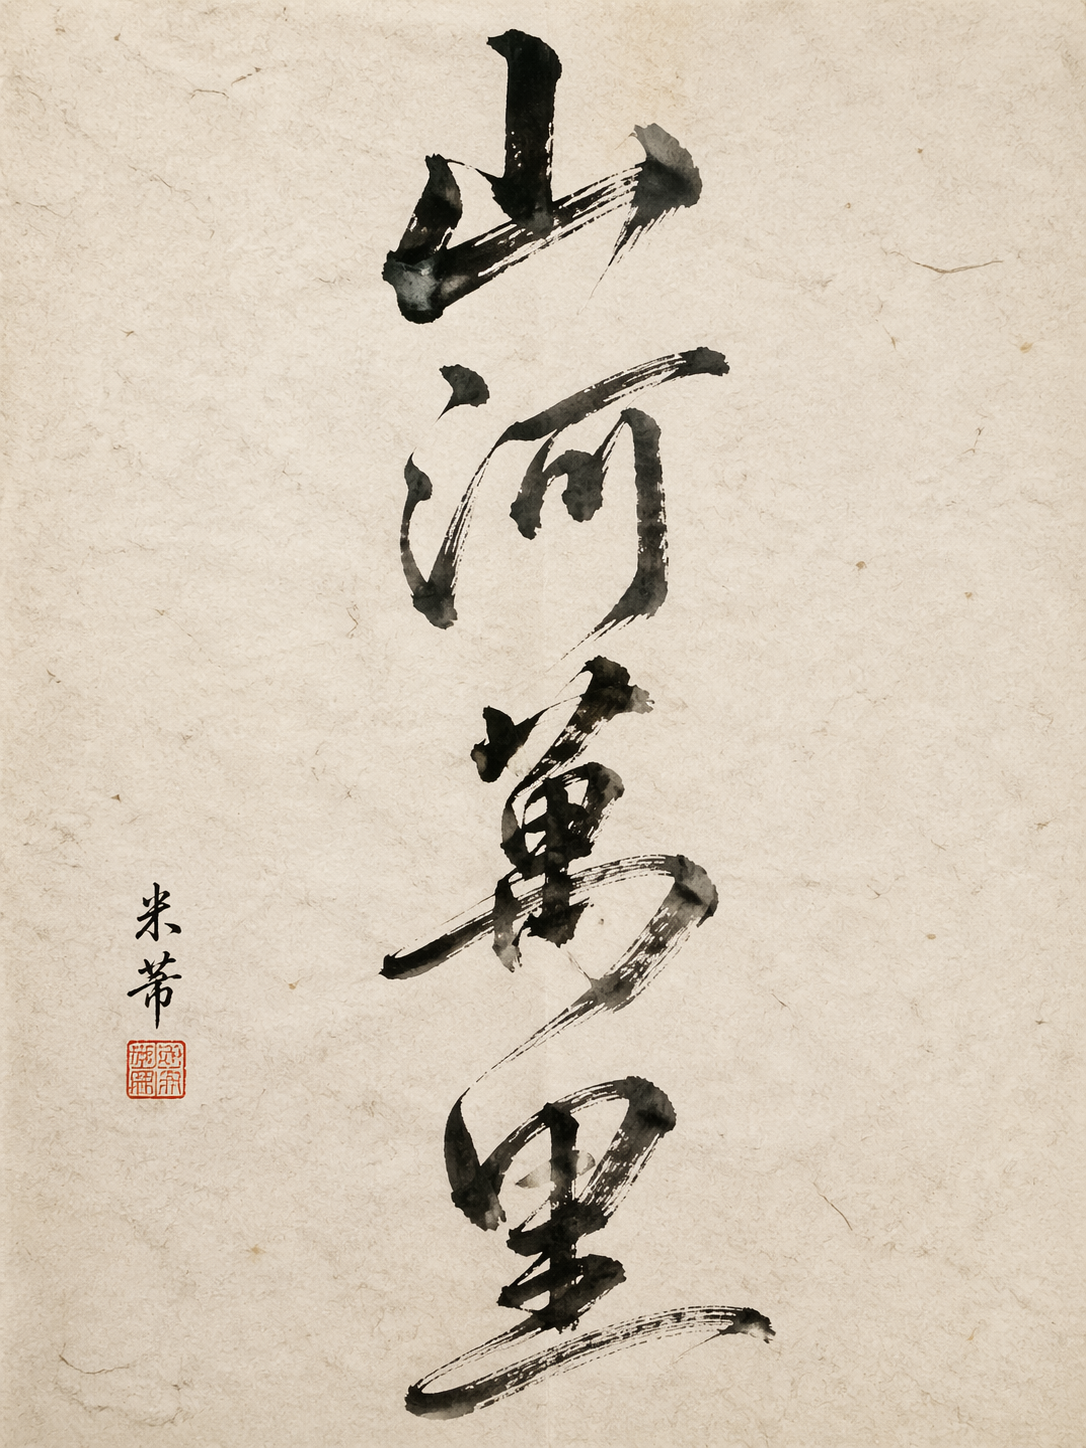 山河萬里
米芾